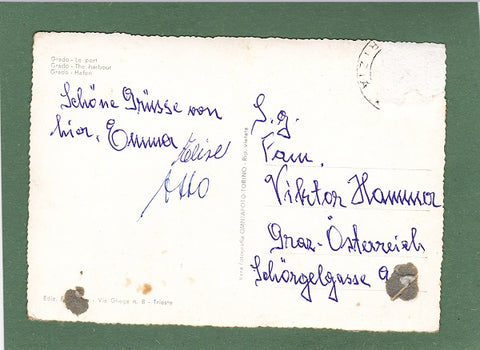 Grado - Le port
Grado - The harbour
Grado - Hafen
Schöne Grüsse von
hier. Emma
Otto
S.g.
Fam.
Viktor Hammer
Graz-Österreich
Schörgelgasse 9
Vera Fotografia GIANCAFOTO TORINO - Rip. vietata
Ediz. - Via Ghega n. 8 - Trieste